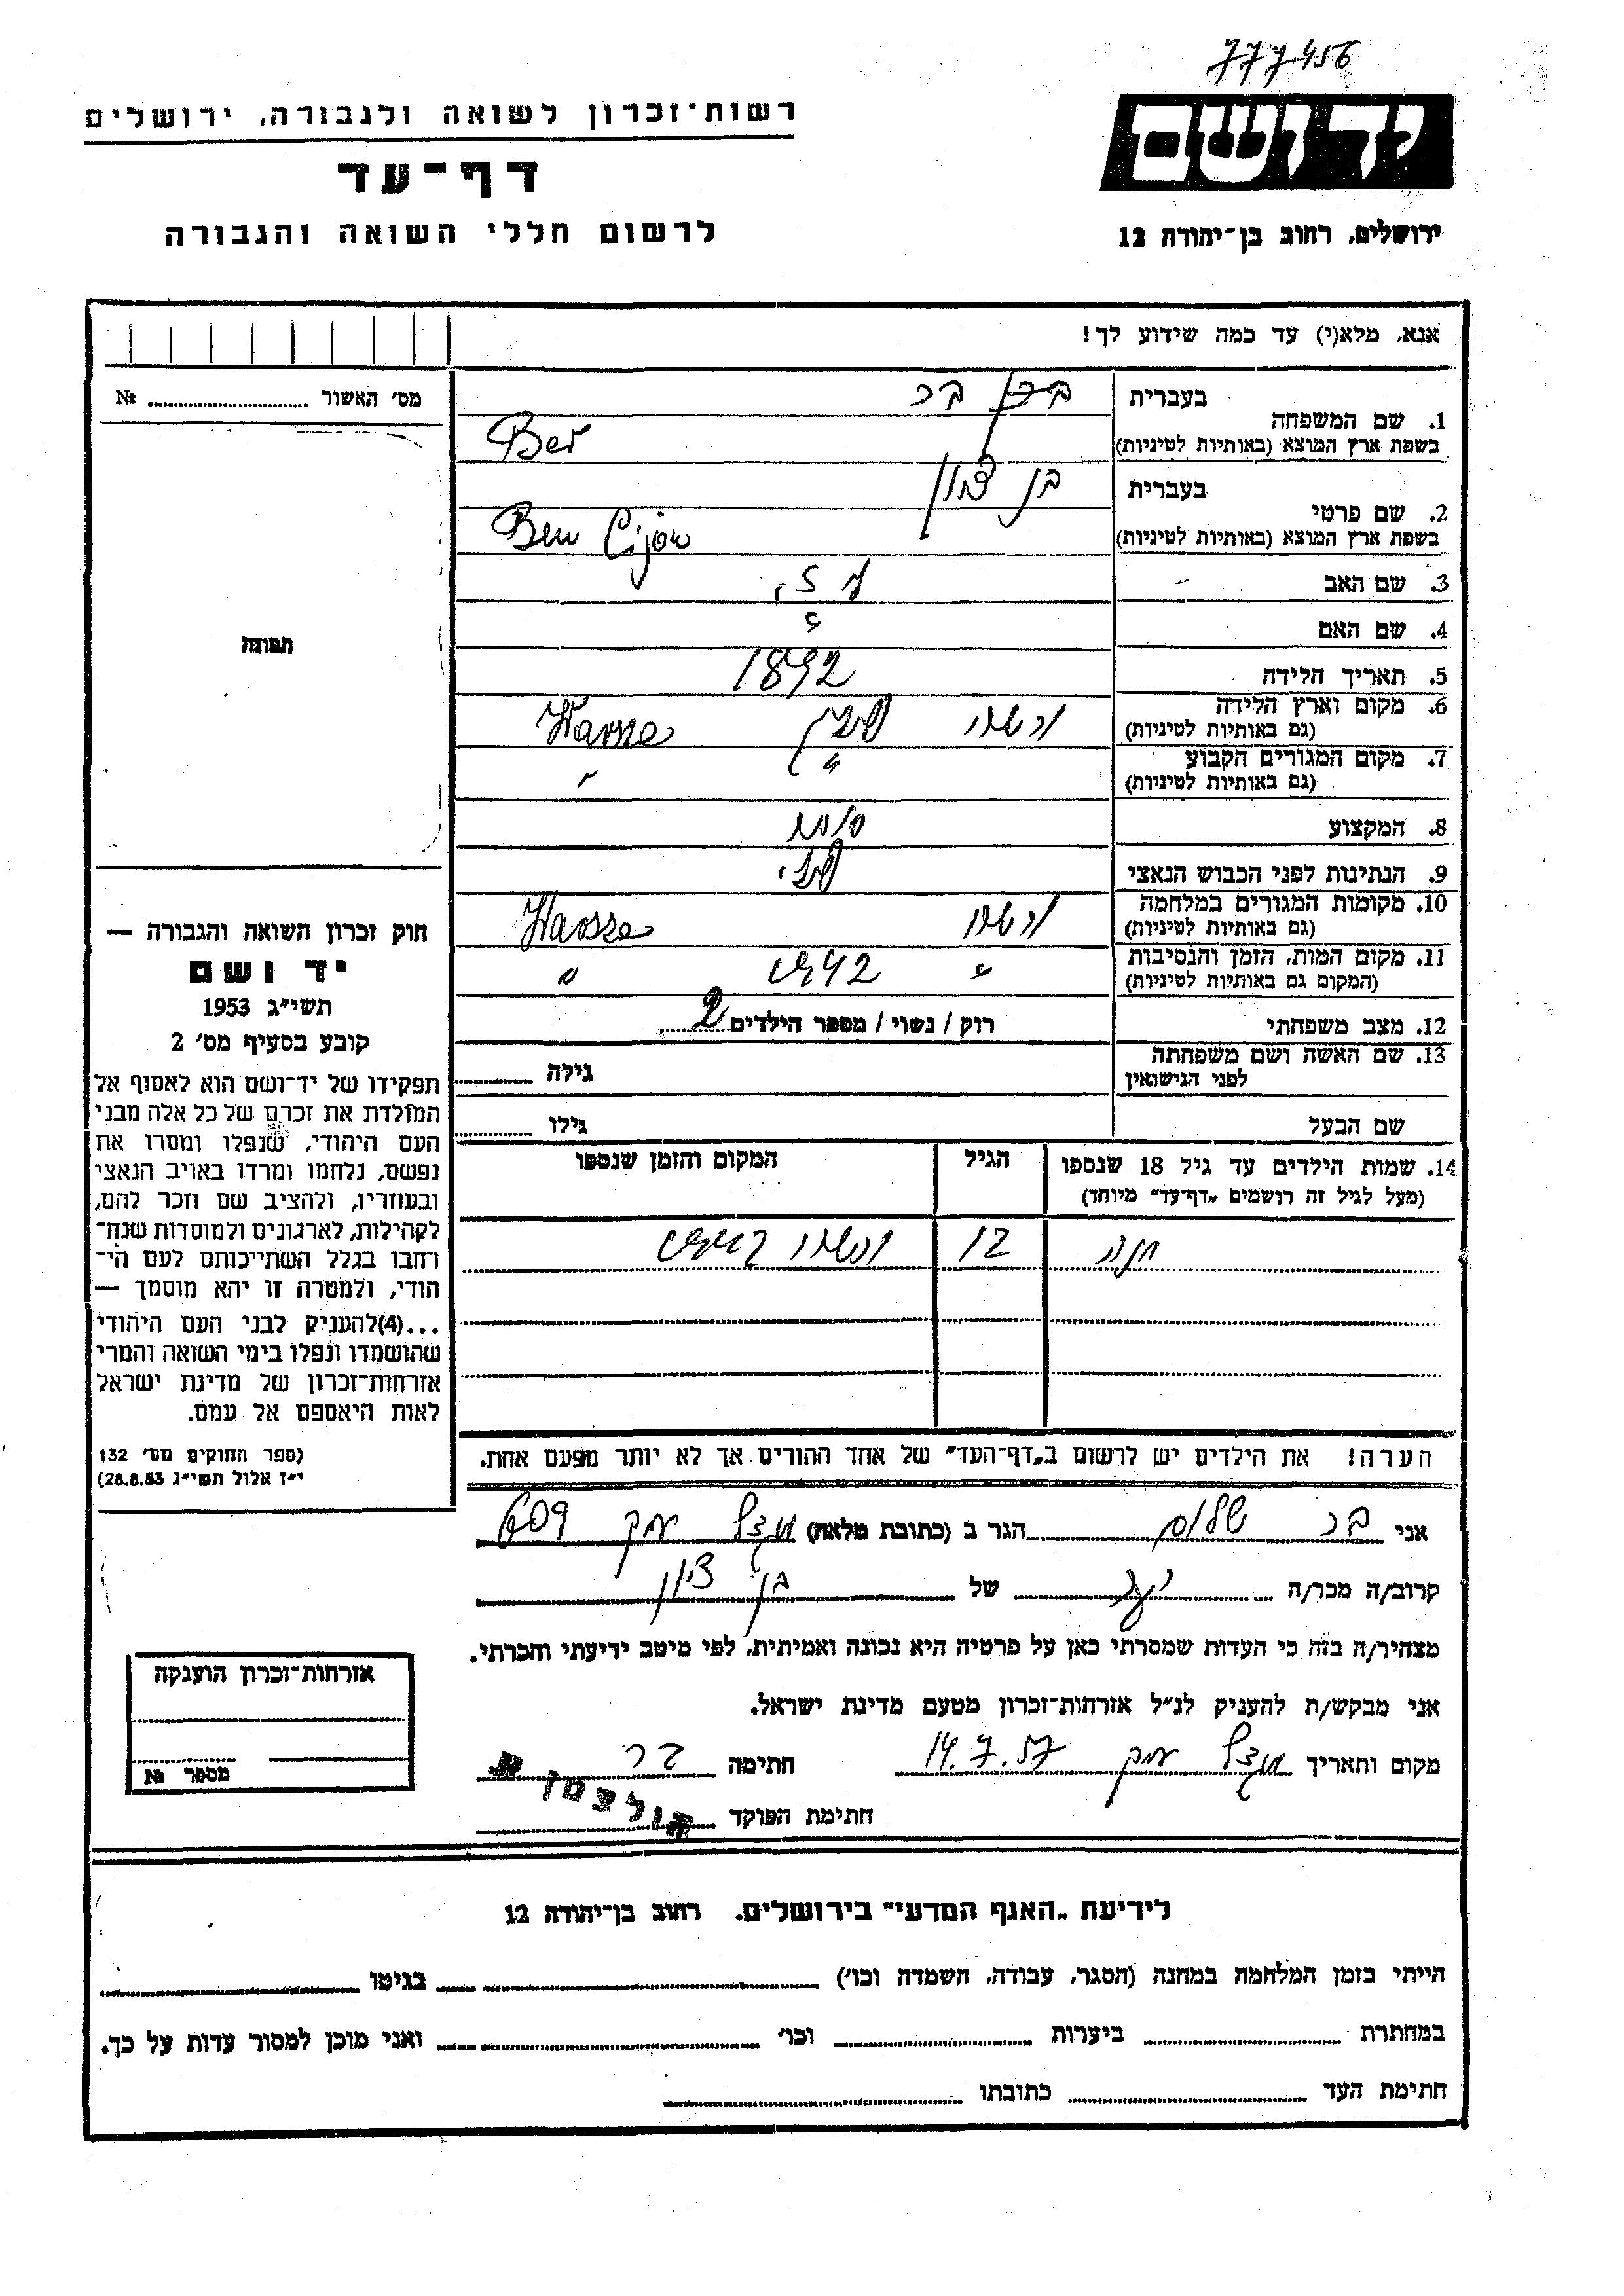 777456
יד ושם
ירושלים, רחוב בן-יהודה 12
רשות-זכרון לשואה ולגבורה, ירושלים
דף-עד
לרשום חללי השואה והגבורה
אנא, מלא(י) עד כמה שידוע לך!
מס' האשור № ..........
תמונה
חוק זכרון השואה והגבורה —
יד ושם
תשי"ג 1953
קובע בסעיף מס' 2
תפקידו של יד-ושם הוא לאסוף אל
המולדת את זכרם של כל אלה מבני
העם היהודי, שנפלו ומסרו את
נפשם, נלחמו ומרדו באויב הנאצי
ובעוזריו, ולהציב שם וזכר להם,
לקהילות, לארגונים ולמוסדות שנח-
רחבו בגלל השתייכותם לעם הי-
הודי, ולמטרה זו יהא מוסמך —
...(4)להעניק לבני העם היהודי
שהושמדו ונפלו בימי השואה והמרי
אזרחות-זכרון של מדינת ישראל
לאות היאספם אל עמם.
(ספר החוקים מס' 132
י"ז אלול תשי"ג 28.8.53)
1. שם המשפחה בעברית בר
בשפת ארץ המוצא (באותיות לטיניות) Ber
2. שם פרטי בעברית בן ציון
בשפת ארץ המוצא (באותיות לטיניות) Ben Cijon
3. שם האב
4. שם האם "
5. תאריך הלידה 1892
6. מקום וארץ הלידה ורשה פולין Warsza
(גם באותיות לטיניות)
7. מקום המגורים הקבוע " "
(גם באותיות לטיניות)
8. המקצוע סוחר
9. הנתינות לפני הכבוש הנאצי פולני
10. מקומות המגורים במלחמה ורשה Warsza
(גם באותיות לטיניות)
11. מקום המות, הזמן והנסיבות " 1942 "
(המקום גם באותיות לטיניות)
12. מצב משפחתי רוק / נשוי / מספר הילדים 2
13. שם האשה ושם משפחתה גילה ..........
לפני הנישואין
שם הבעל גילו ..........
14. שמות הילדים עד גיל 18 שנספו הגיל המקום והזמן שנספו
(מעל לגיל זה רושמים „דף-עד" מיוחד)
חנה 12 ורשה
הערה! את הילדים יש לרשום ב„דף-העד" של אחד ההורים אך לא יותר מפעם אחת.
אני בר שלום הגר ב (כתובת מלאה) מגדל עמק 609
קרוב/ה מכר/ה של בן ציון
מצהיר/ה בזה כי העדות שמסרתי כאן על פרטיה היא נכונה ואמיתית, לפי מיטב ידיעתי והכרתי.
אני מבקש/ת להעניק לנ"ל אזרחות-זכרון מטעם מדינת ישראל.
מקום ותאריך מגדל עמק 14.7.57 חתימה בר
חתימת הפוקד הולצמן
אזרחות-זכרון הוענקה
מספר №
לידיעת „האגף המדעי" בירושלים, רחוב בן-יהודה 12
הייתי בזמן המלחמה במחנה (הסגר, עבודה, השמדה וכו') .......... בגיטו ..........
במחתרת .......... ביערות .......... וכו' .......... ואני מוכן למסור עדות על כך.
חתימת העד .......... כתובתו ..........